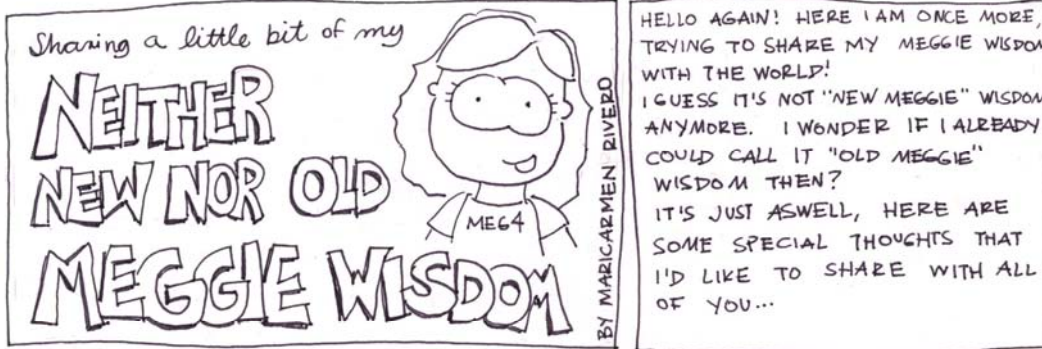 Sharing a little bit of my
NEITHER
NEW NOR OLD
MEGGIE WISDOM
MEG4
BY MARICARMEN RIVERO
HELLO AGAIN! HERE I AM ONCE MORE,
TRYING TO SHARE MY MEGGIE WISDOM
WITH THE WORLD!
I GUESS IT'S NOT "NEW MEGGIE" WISDOM
ANYMORE. I WONDER IF I ALREADY
COULD CALL IT "OLD MEGGIE"
WISDOM THEN?
IT'S JUST ASWELL, HERE ARE
SOME SPECIAL THOUGHTS THAT
I'D LIKE TO SHARE WITH ALL
OF YOU...